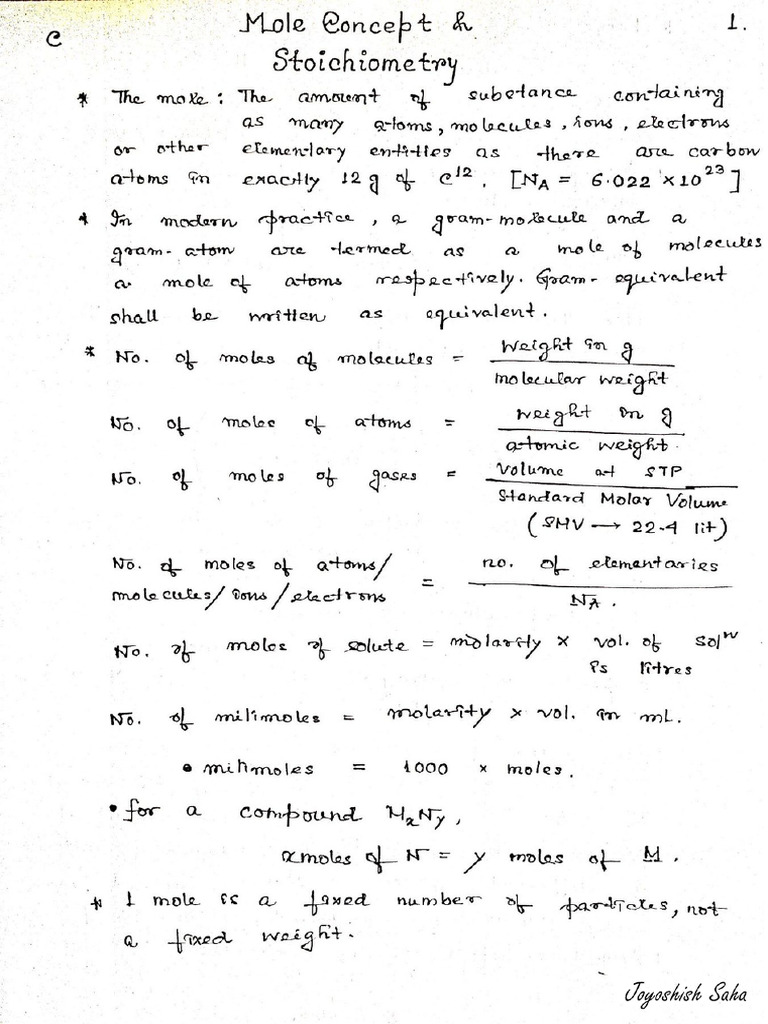 C
Mole Concept &
1.
Stoichiometry
* The mole : The amount of substance containing
as many atoms, molecules, ions, electrons
or other elementary entities as there are carbon
atoms in exactly 12 g of C¹². [N_A = 6.022 × 10²³]
* In modern practice, a gram-molecule and a
gram-atom are termed as a mole of molecules
a mole of atoms respectively. Gram-equivalent
shall be written as equivalent.
* No. of moles of molecules = weight in g / molecular weight
No. of moles of atoms = weight in g / atomic weight.
No. of moles of gases = Volume at STP / Standard Molar Volume
(SMV → 22.4 lit)
No. of moles of atoms/
molecules/ions/electrons = no. of elementaries / N_A.
No. of moles of solute = molarity × vol. of solⁿ
is litres
No. of milimoles = molarity × vol. in mL.
• milimoles = 1000 × moles.
• for a compound MₓNᵧ,
x moles of N = y moles of M.
* 1 mole is a fixed number of particles, not
a fixed weight.
Joyoshish Saha